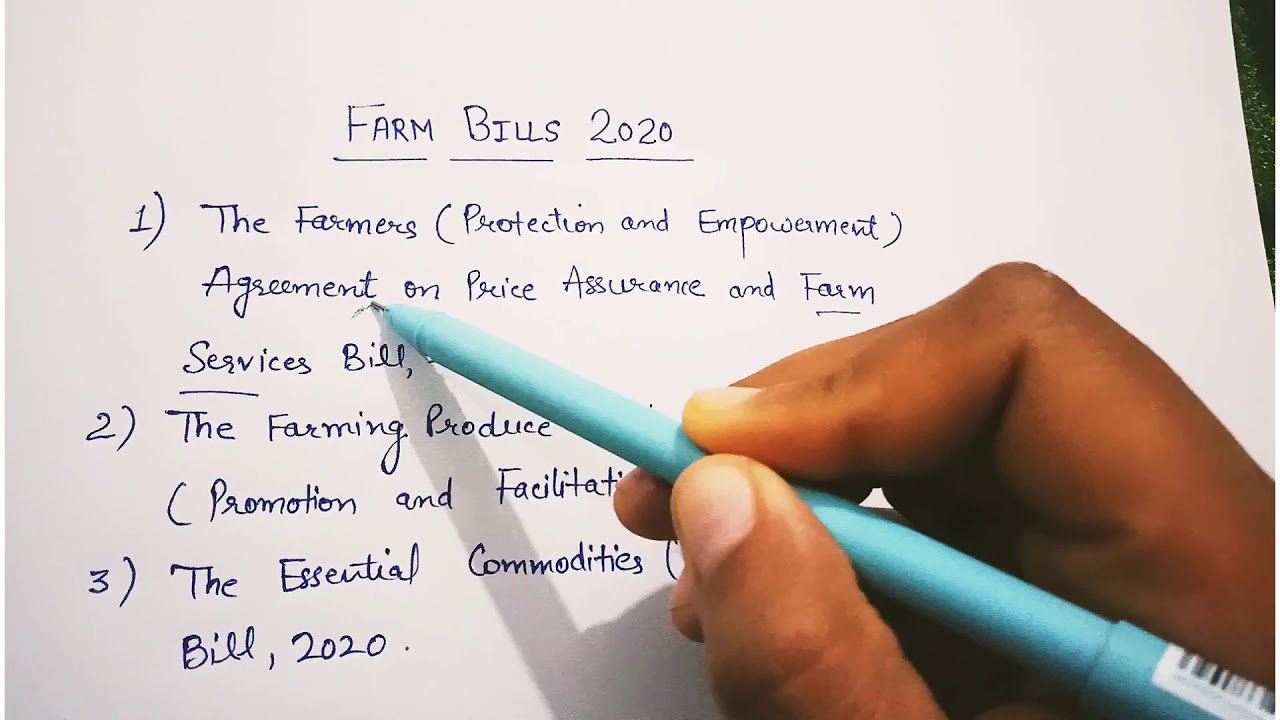 FARM BILLS 2020
1) The Farmers (Protection and Empowerment)
Agreement on Price Assurance and Farm
Services Bill,
2) The Farming Produce
(Promotion and
3) The Essential Commodities (
Bill, 2020.